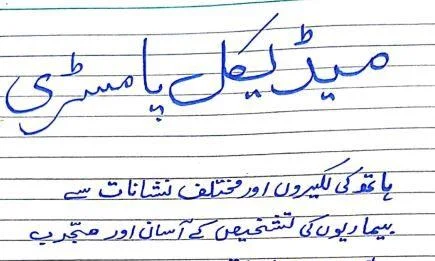 میڈیکل پامسٹری
ہاتھ کی لکیروں اور مختلف نشانات سے
بیماریوں کی تشخیص کے آسان اور مجرب